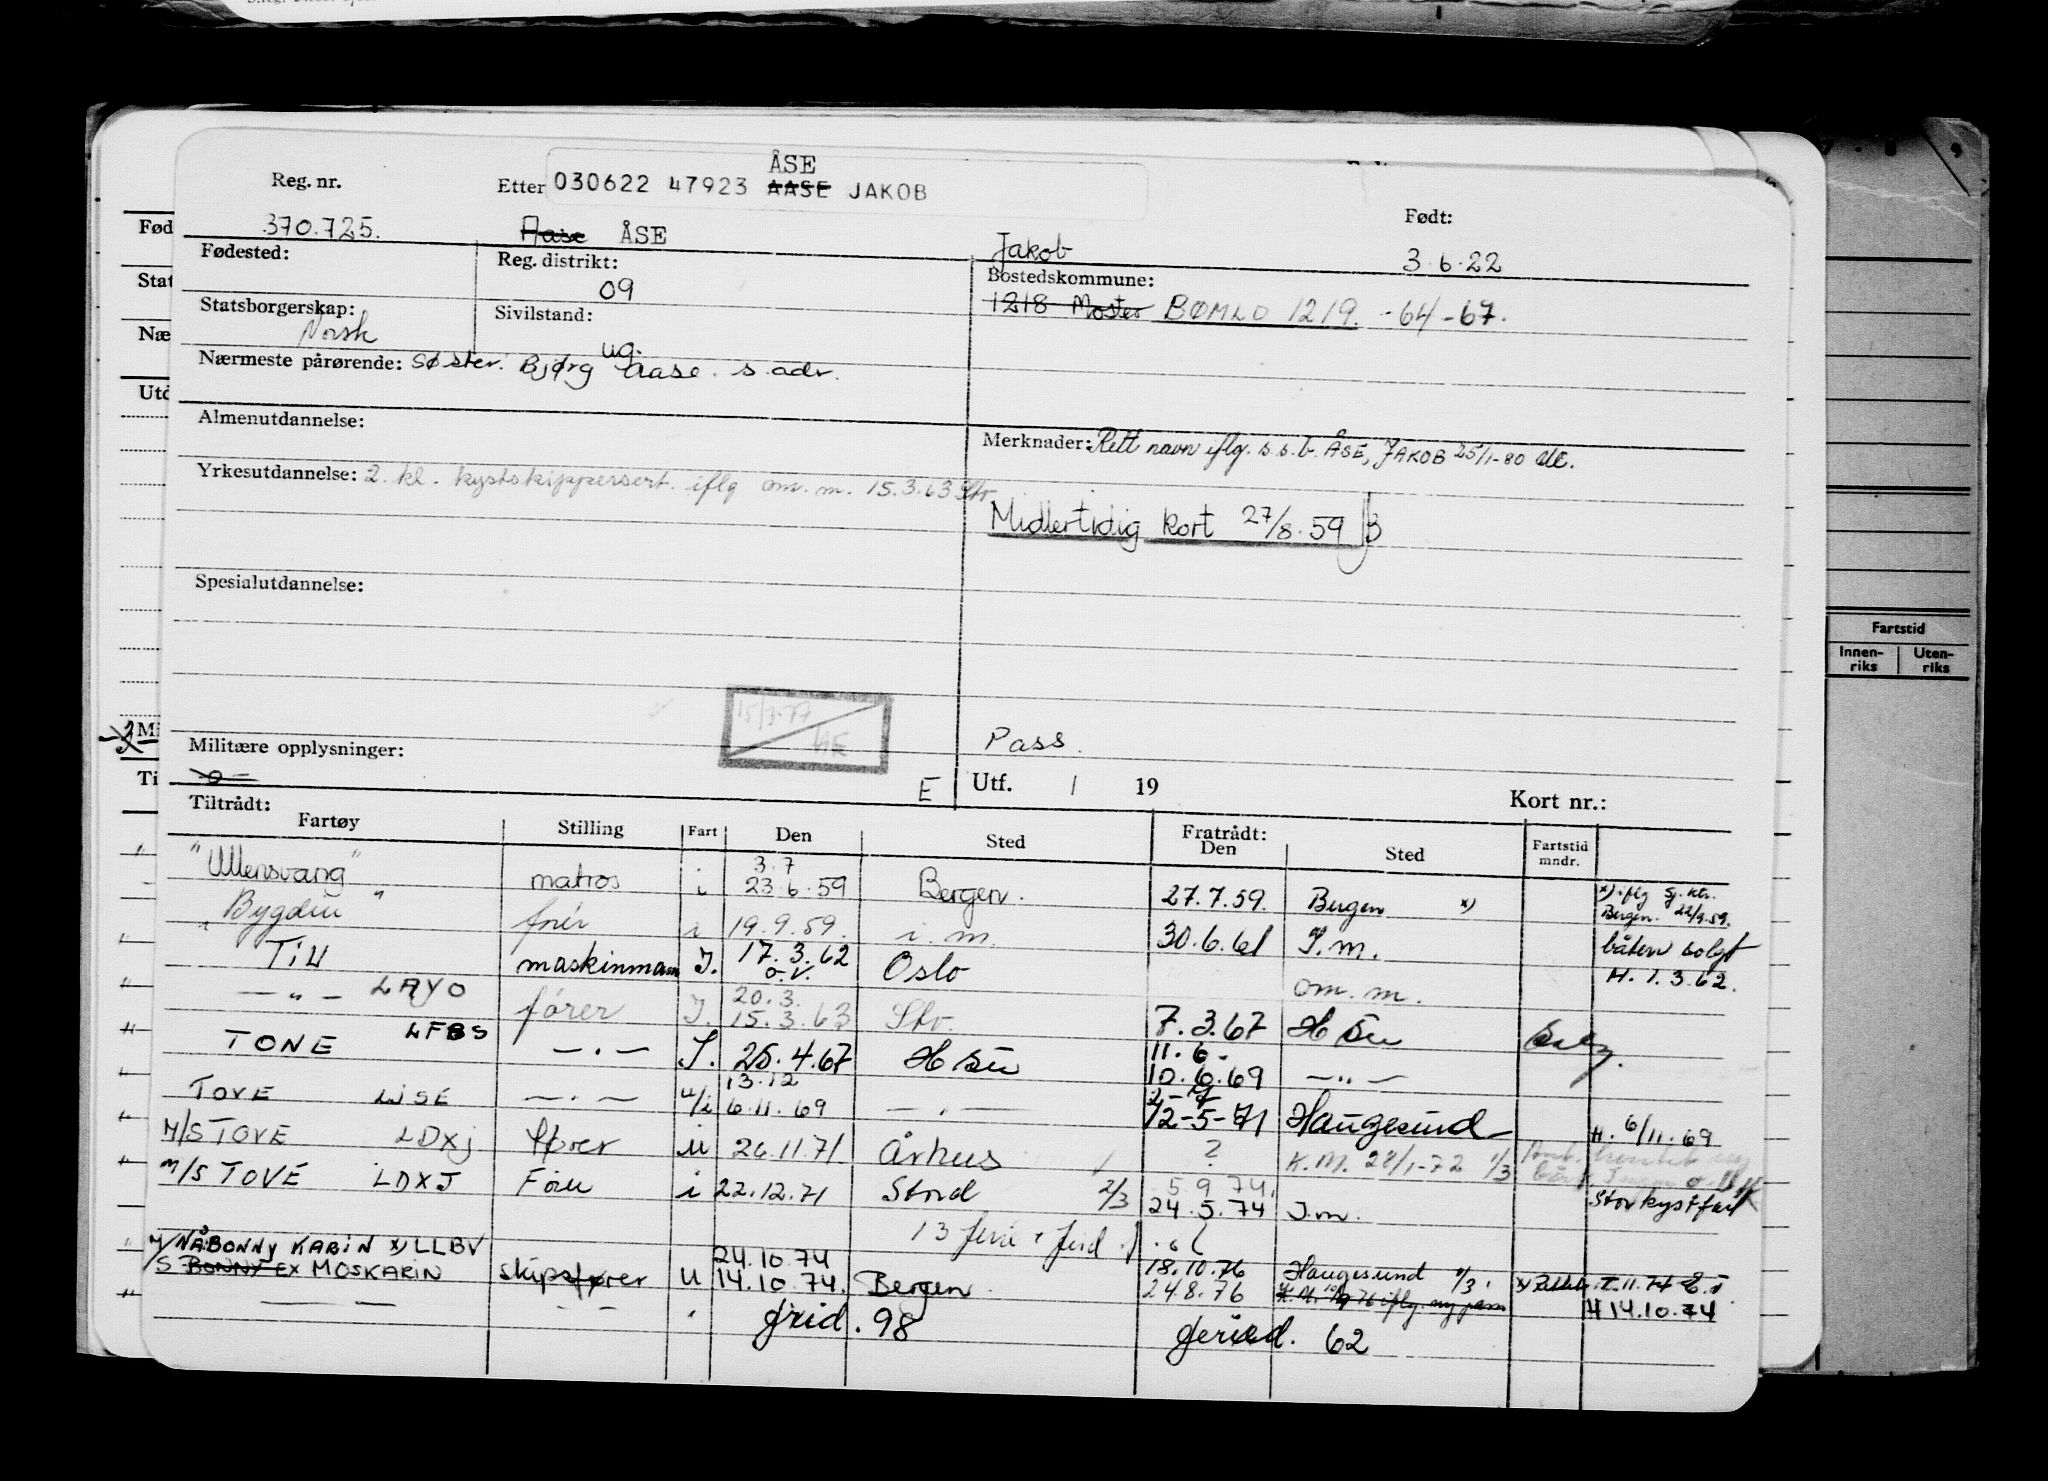 ÅSE
Reg. nr. Etter 030622 47923 AASE JAKOB
Født:
370.725. Aase ÅSE Jakob 3.6.22
Fødested: Reg. distrikt: Bostedskommune:
09 1218 Moster BØMLO 1219. -64-67.
Statsborgerskap: Sivilstand:
Norsk ug.
Nærmeste pårørende: Søster: Bjørg Aase. s. adr.
Almenutdannelse: Merknader: Rett navn iflg. s.s.b. ÅSE, JAKOB 25/1-80
Yrkesutdannelse: 2. kl. kystskippersert. iflg om. m. 15.3.63 Stv
Midlertidig kort 27/8.59
Spesialutdannelse:
15/3.77
Militære opplysninger: Pass.
E Utf. / 19 Kort nr.:
Tiltrådt: Fratrådt:
Fartøy Stilling Fart Den Sted Den Sted Fartstid mndr.
3.7
"Ullensvang" matros i 23.6.59 Bergen. 27.7.59. Bergen x) x) iflg Sj. ktr. Bergen. 22/9.59.
"Bygdin" i 19.9.59. i. m. 30.6.61 I.m. båten solgt
Till maskinmann I. 17.3.62 Oslo om. m. H. 1.3.62.
o.v.
— " — LAYO fører I. 20.3.
15.3.63 Stv. 7.3.67
TONE LFBS — " — I. 25.4.67 11.6.
10.6.69 — " —
TOVE LISE — " — u/i 13.12
6.11.69 — " — 12-5-71 Haugesund H. 6/11.69
M/S TOVE LDXJ fører u 26.11.71. Århus ? K.M. 28/1-72 1/3
M/S TOVE LDXJ Fører i 22.12.71 Stord 2/3 5.9.74.
24.5.74 I.m. Stor kystfart
13
M/S NÅ: BONNY KARIN x) LLBV
BONNY EX MOSKARIN skipsfører u 24.10.74
14.10.74. Bergen 18.10.76 Haugesund 1/3
24.8.76 iflg. ny H 14.10.74
98 62
Fartstid
Innen-riks Uten-riks